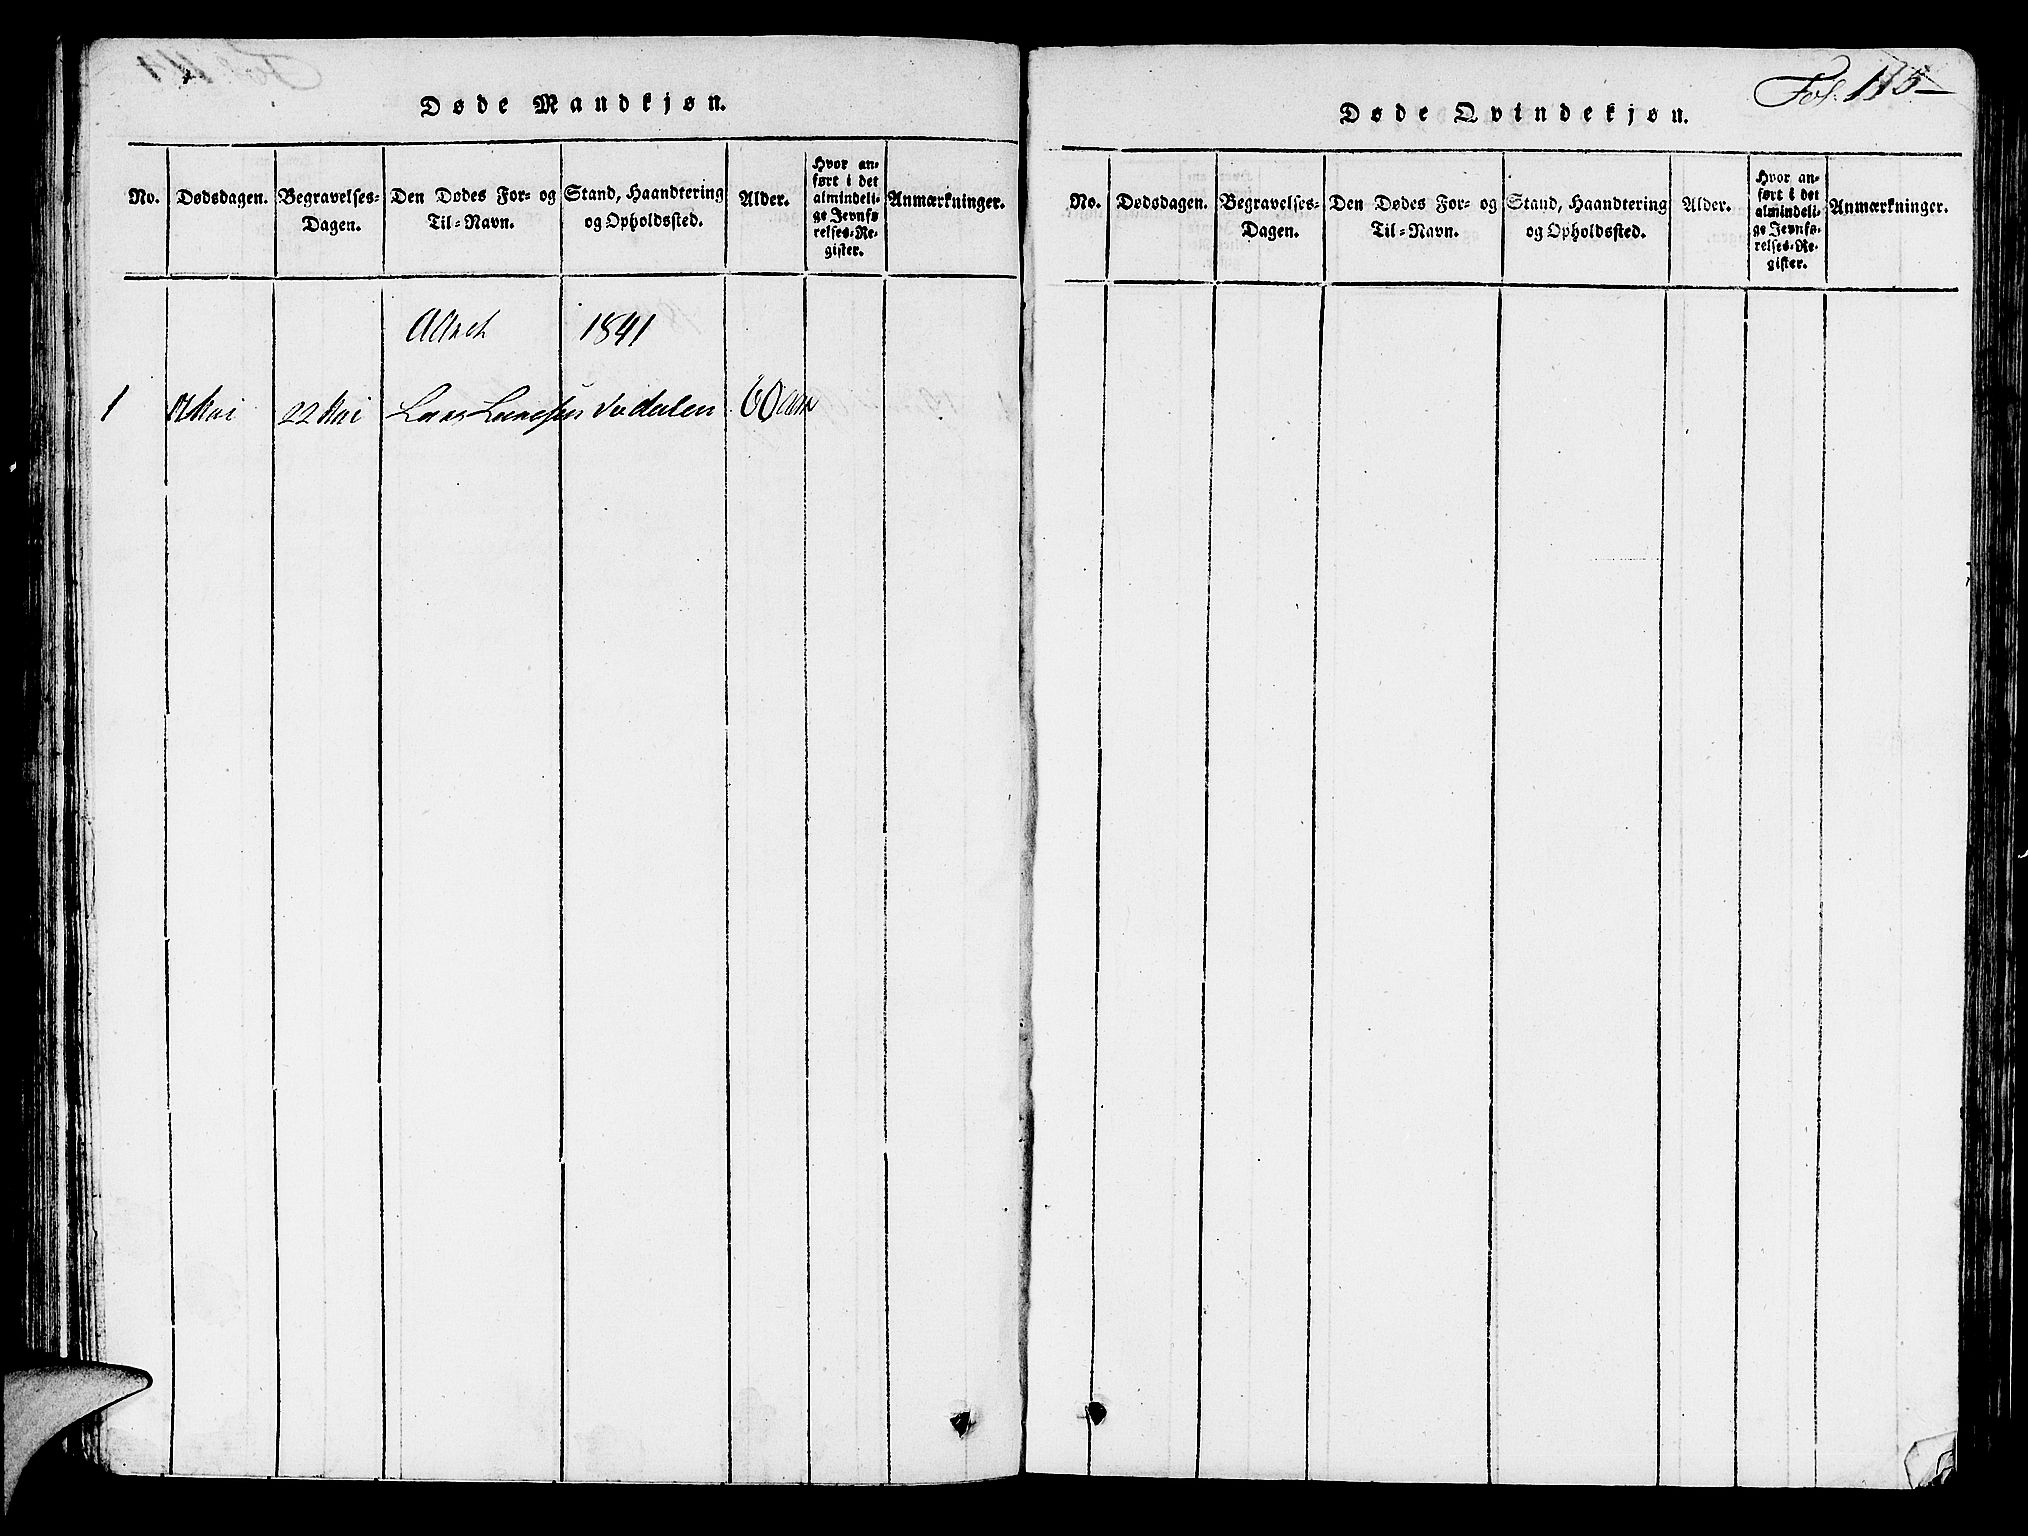 Døde Mandkjøn.
No. Dødsdagen. Begravelses-Dagen. Den Dødes For- og Til-Navn. Stand, Haandtering og Opholdssted. Alder. Hvor anført i det almindelige Jevnførelses-Register. Anmærkninger.
Aaret 1841
1 17 Mai 22 Mai Lars Larsen 60 aar
Fol. 115
Døde Qvindekjøn.
No. Dødsdagen. Begravelses-Dagen. Den Dødes For- og Til-Navn. Stand, Haandtering og Opholdssted. Alder. Hvor anført i det almindelige Jevnførelses-Register. Anmærkninger.